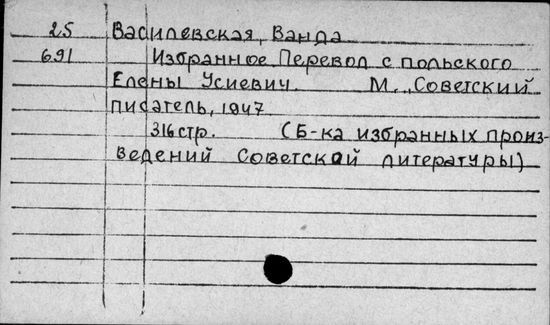 25 Василевская, Ванда
691 Избранное Перевод с польского
Елены Усиевич. М., Советский
писатель, 1947
316 стр. (Б-ка избранных произ-
ведений Советской литературы)